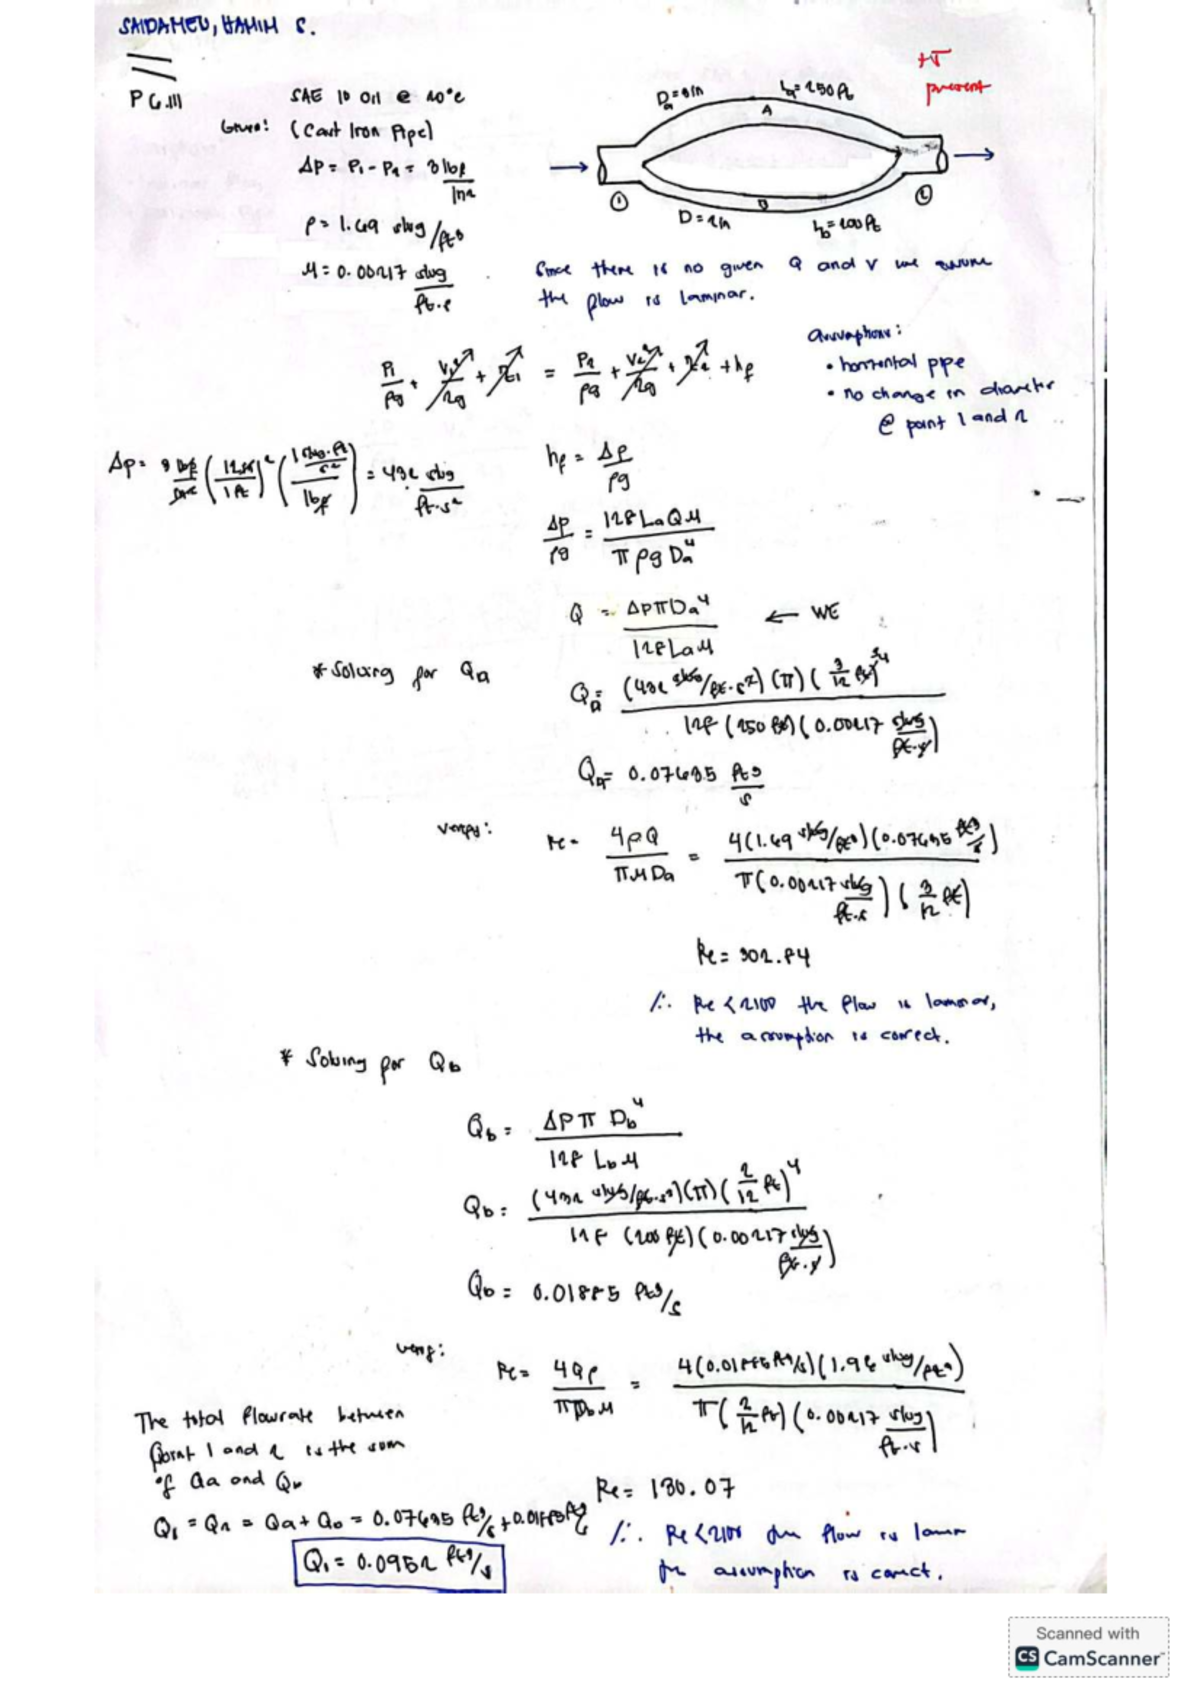 SAIDAMEN, HAHIM S.
P6.111
Given:
SAE 10 oil @ 20°c
(Cast Iron Pipe)
ΔP = P₁ - P₂ = 3 lbf/in²
ρ = 1.69 slug/ft³
μ = 0.00217 slug/ft·s
+5
present
D_a = 3in
L_a = 250 ft
A
①
②
B
D = 2in
L_b = 200 ft
Since there is no given Q and V we assume
the flow is laminar.
P₁/ρg + V₁²/2g + Z₁ = P₂/ρg + V₂²/2g + Z₂ + hf
assumptions:
• horizontal pipe
• no change in diameter
@ point 1 and 2
ΔP = 3 lbf/in² (12 in/1 ft)² (1 slug·ft/s² / 1 lbf) = 432 slug/ft·s²
hf = ΔP/ρg
ΔP/ρg = 128 La Q μ / π ρg Da⁴
Q = ΔPπDa⁴ / 128 La μ ← WE
* Solving for Qa
Qa = (432 slug/ft·s²)(π)(3/12 ft)⁴ / 128 (250 ft)(0.00217 slug/ft·s)
Qa = 0.07635 ft³/s
verify:
Re = 4ρQ / πμDa = 4(1.69 slug/ft³)(0.07635 ft³/s) / π(0.00217 slug/ft·s)(3/12 ft)
Re = 302.84
∴ Re < 2100 the flow is laminar,
the assumption is correct.
* Solving for Qb
Qb = ΔPπ Db⁴ / 128 Lb μ
Qb = (432 slug/ft·s²)(π)(2/12 ft)⁴ / 128 (200 ft)(0.00217 slug/ft·s)
Qb = 0.01885 ft³/s
verify:
Re = 4Qρ / πDbμ = 4(0.01885 ft³/s)(1.96 slug/ft³) / π(2/12 ft)(0.00217 slug/ft·s)
Re = 130.07
∴ Re < 2100 the flow is laminar
the assumption is correct.
The total flowrate between
point 1 and 2 is the sum
of Qa and Qb
Q₁ = Q₂ = Qa + Qb = 0.07635 ft³/s + 0.01885 ft³/s
Q₁ = 0.0952 ft³/s
Scanned with
CS CamScanner